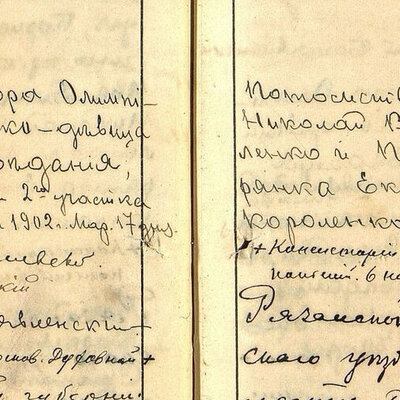 ора Олимпі-
ко-дѣвица
ѣданія,
2го участка
1902. Мар. 17 дня.
скій
явленскі-
Духовной +
губерні
Потомств
Николай В
ленко и П
рянка Ек
короленко
+ Консисторіи
Рязанской
скаго уѣз